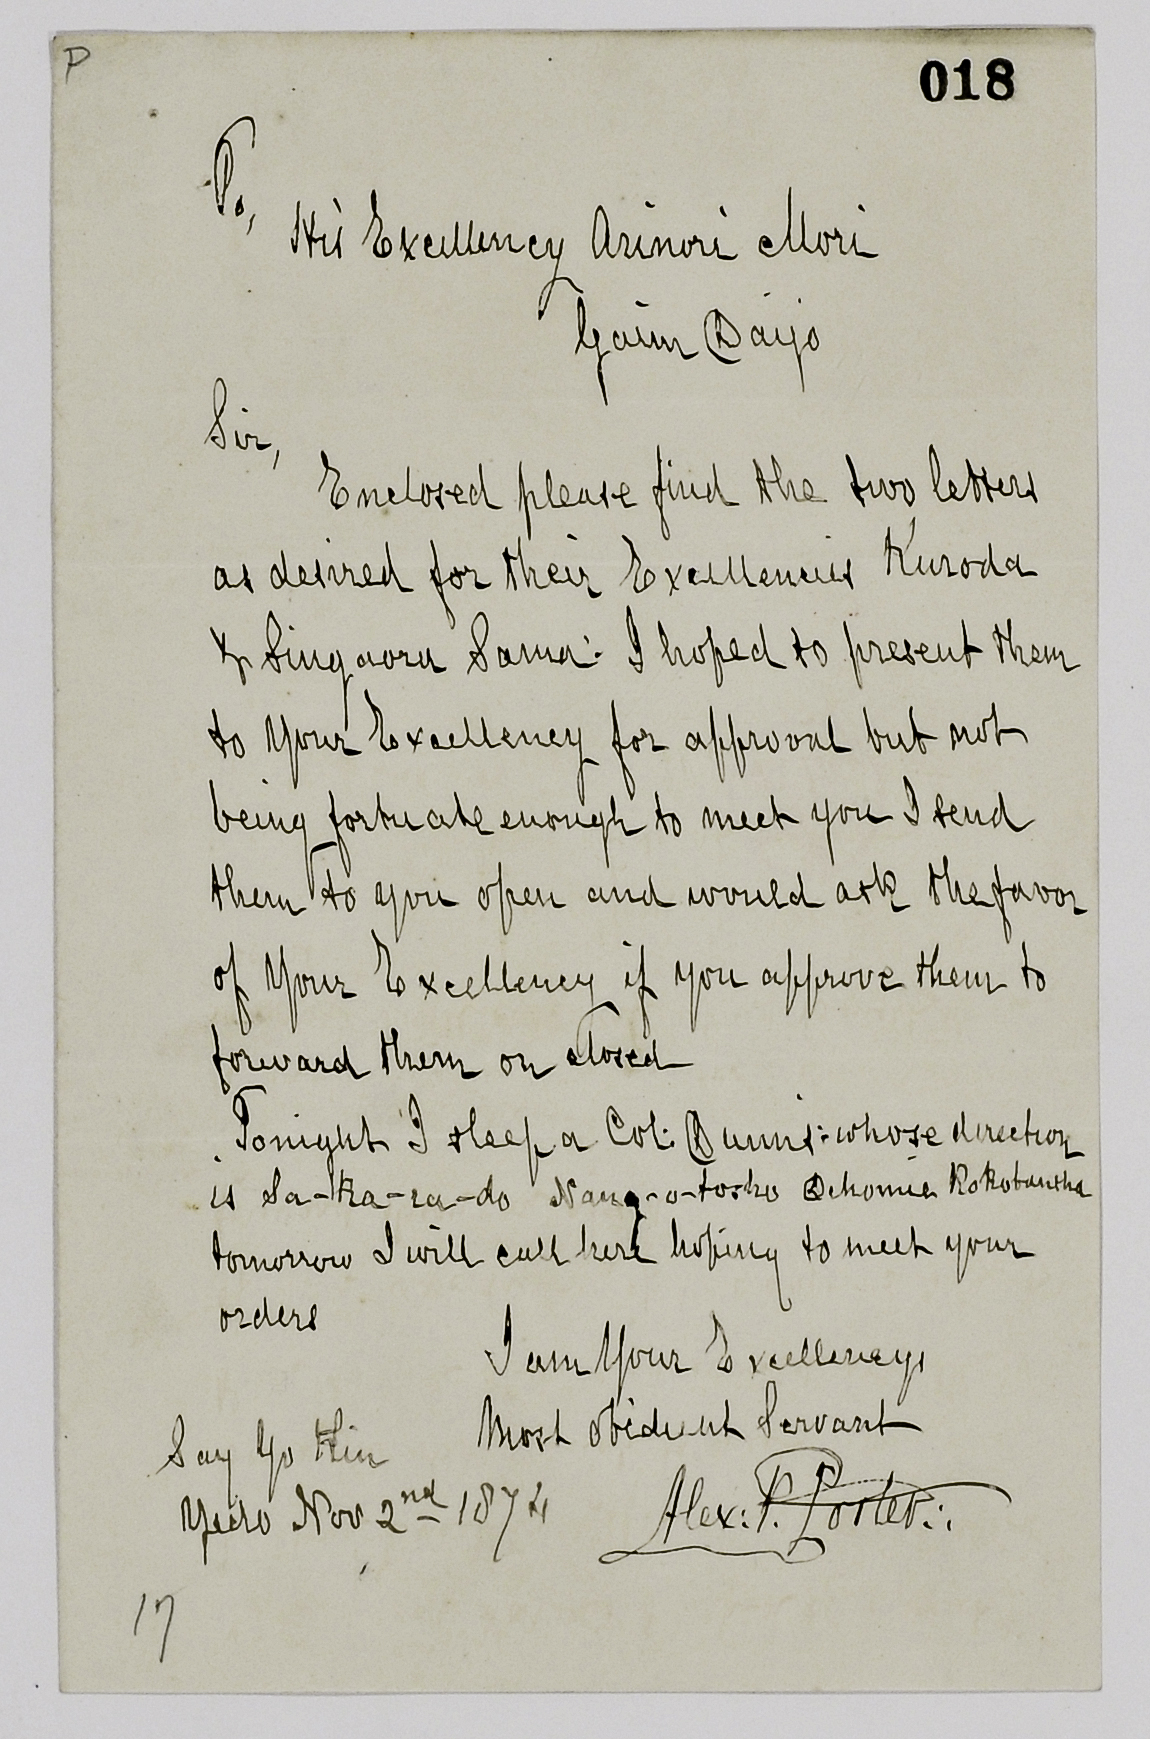 P
018
To,
His Excellency Arinori Mori
Gaim Daijo
Sir,
Enclosed please find the two letters
as desired for their Excellencies Kuroda
& Sama: I hoped to present them
to Your Excellency for approval but not
being fortuate enough to meet you I send
them to you open and would ask the favor
of Your Excellency if you approve them to
forward them on closed
Tonight I sleep a Col: Dunns: whose direction
is Sa-ka-ra-do
tomorrow I will call here hoping to meet your
orders
I am Your Excellencys
Most obidient Servant
Say Yo Kin
Yedo Nov 2nd 1874
Alex: P. Porter:.
17